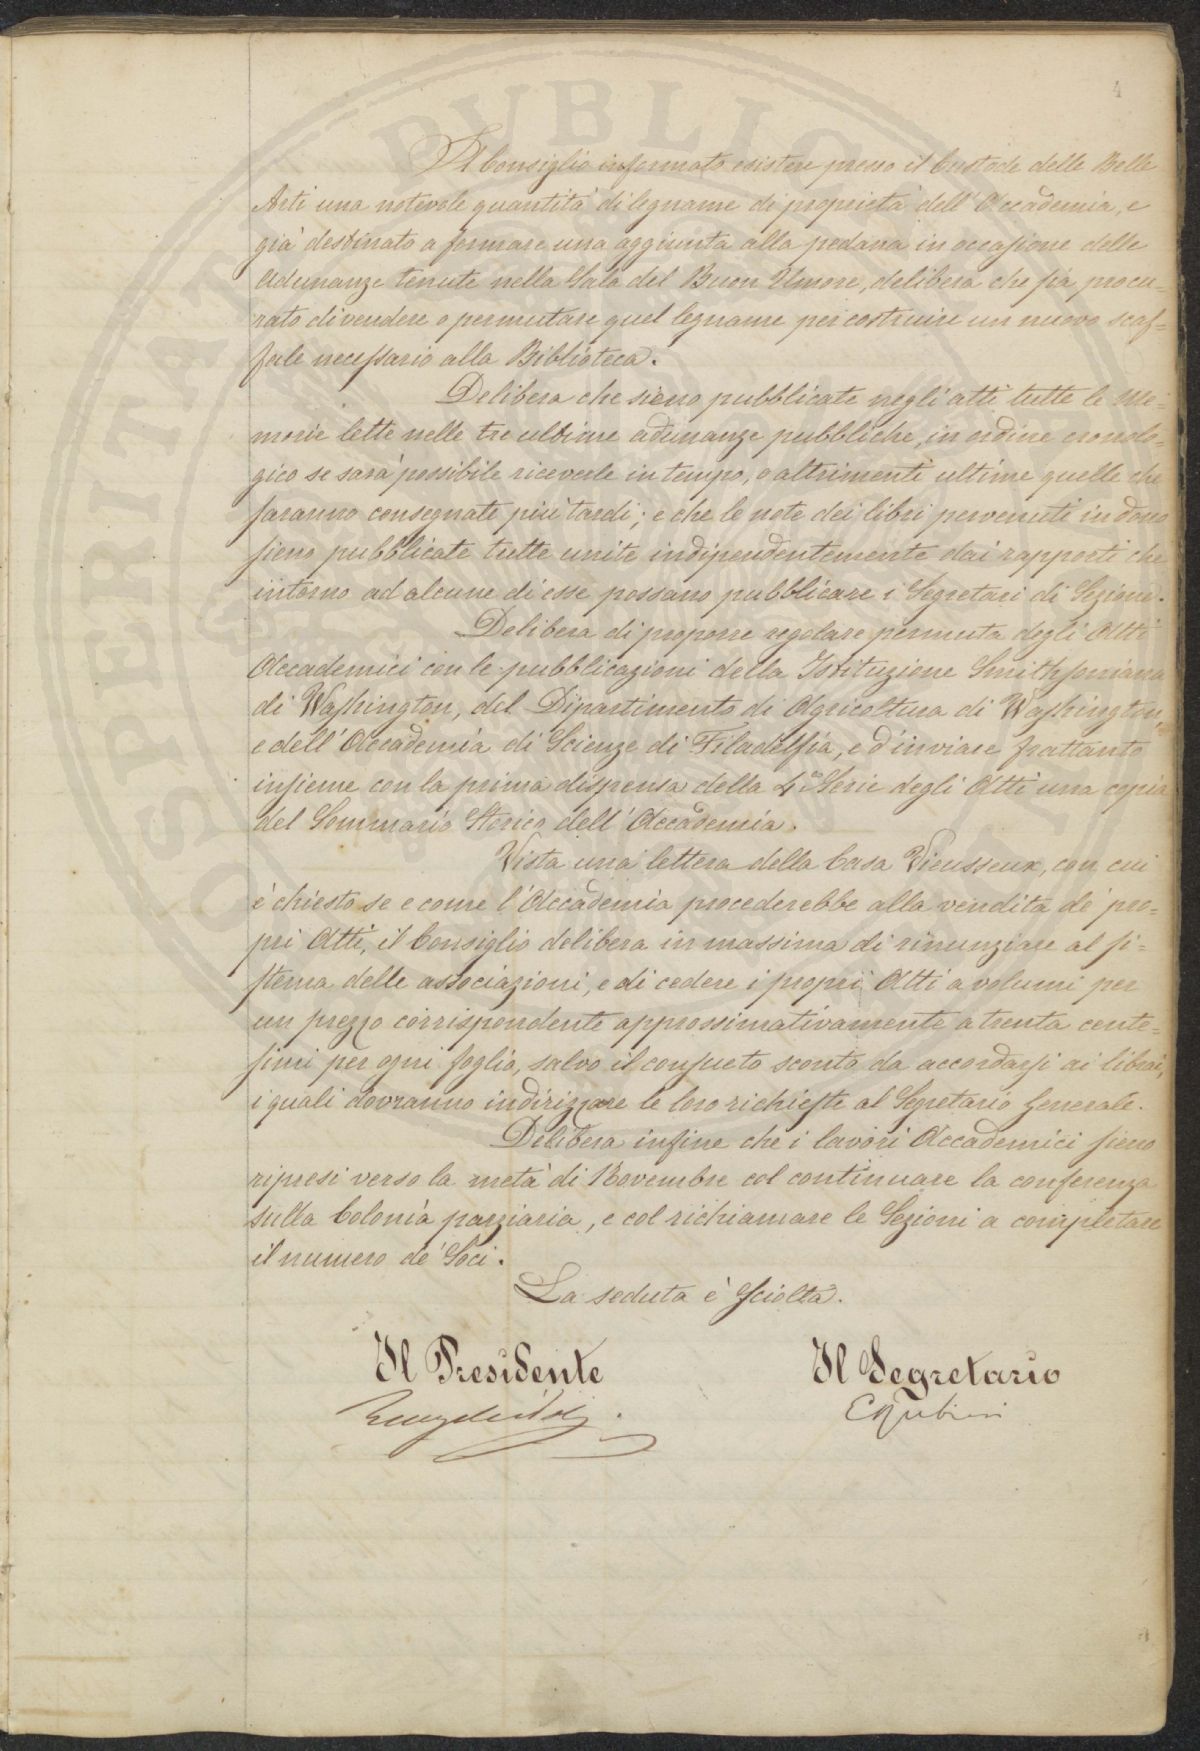 4
Il Consiglio informato esistere presso il Custode delle Belle
Arti una notevole quantità di legname di proprietà dell'Accademia, e
già destinato a formare una aggiunta alla pedana in occasione delle
Adunanze tenute nella Sala del Buon Umore, delibera che sia procu-
rato di vendere o permutare quel legname per costruire un nuovo scaf-
fale necessario alla Biblioteca.
Delibera che sieno pubblicate negli atti tutte le Me-
morie lette nelle tre ultime adunanze pubbliche, in ordine cronolo-
gico se sarà possibile riceverle in tempo, o altrimenti ultime quelle che
saranno consegnate più tardi; e che le note dei libri pervenuti in dono
sieno pubblicate tutte unite indipendentemente dai rapporti che
intorno ad alcune di esse possano pubblicare i Segretari di Sezione.
Delibera di proporre regolare permuta degli Atti
Accademici con le pubblicazioni della Istituzione Smithsoniana
di Washington, del Dipartimento di Agricoltura di Washington,
e dell'Accademia di Scienze di Filadelfia, e d'inviare frattanto
insieme con la prima dispensa della 4a Serie degli Atti una copia
del Sommario Storico dell'Accademia.
Vista una lettera della Casa Vieusseux, con cui
è chiesto se e come l'Accademia procederebbe alla vendita de' pro-
pri Atti, il Consiglio delibera in massima di rinunziare al si-
stema delle associazioni, e di cedere i propri Atti a volumi per
un prezzo corrispondente approssimativamente a trenta cente-
simi per ogni foglio, salvo il consueto sconto da accordarsi ai librai,
i quali dovranno indirizzare le loro richieste al Segretario Generale.
Delibera infine che i lavori Accademici sieno
ripresi verso la metà di Novembre col continuare la conferenza
sulla Colonia parziaria, e col richiamare le Sezioni a completare
il numero de' Soci.
La seduta è sciolta.
Il Presidente
Il Segretario
PROSPERITATI PUBLICAE